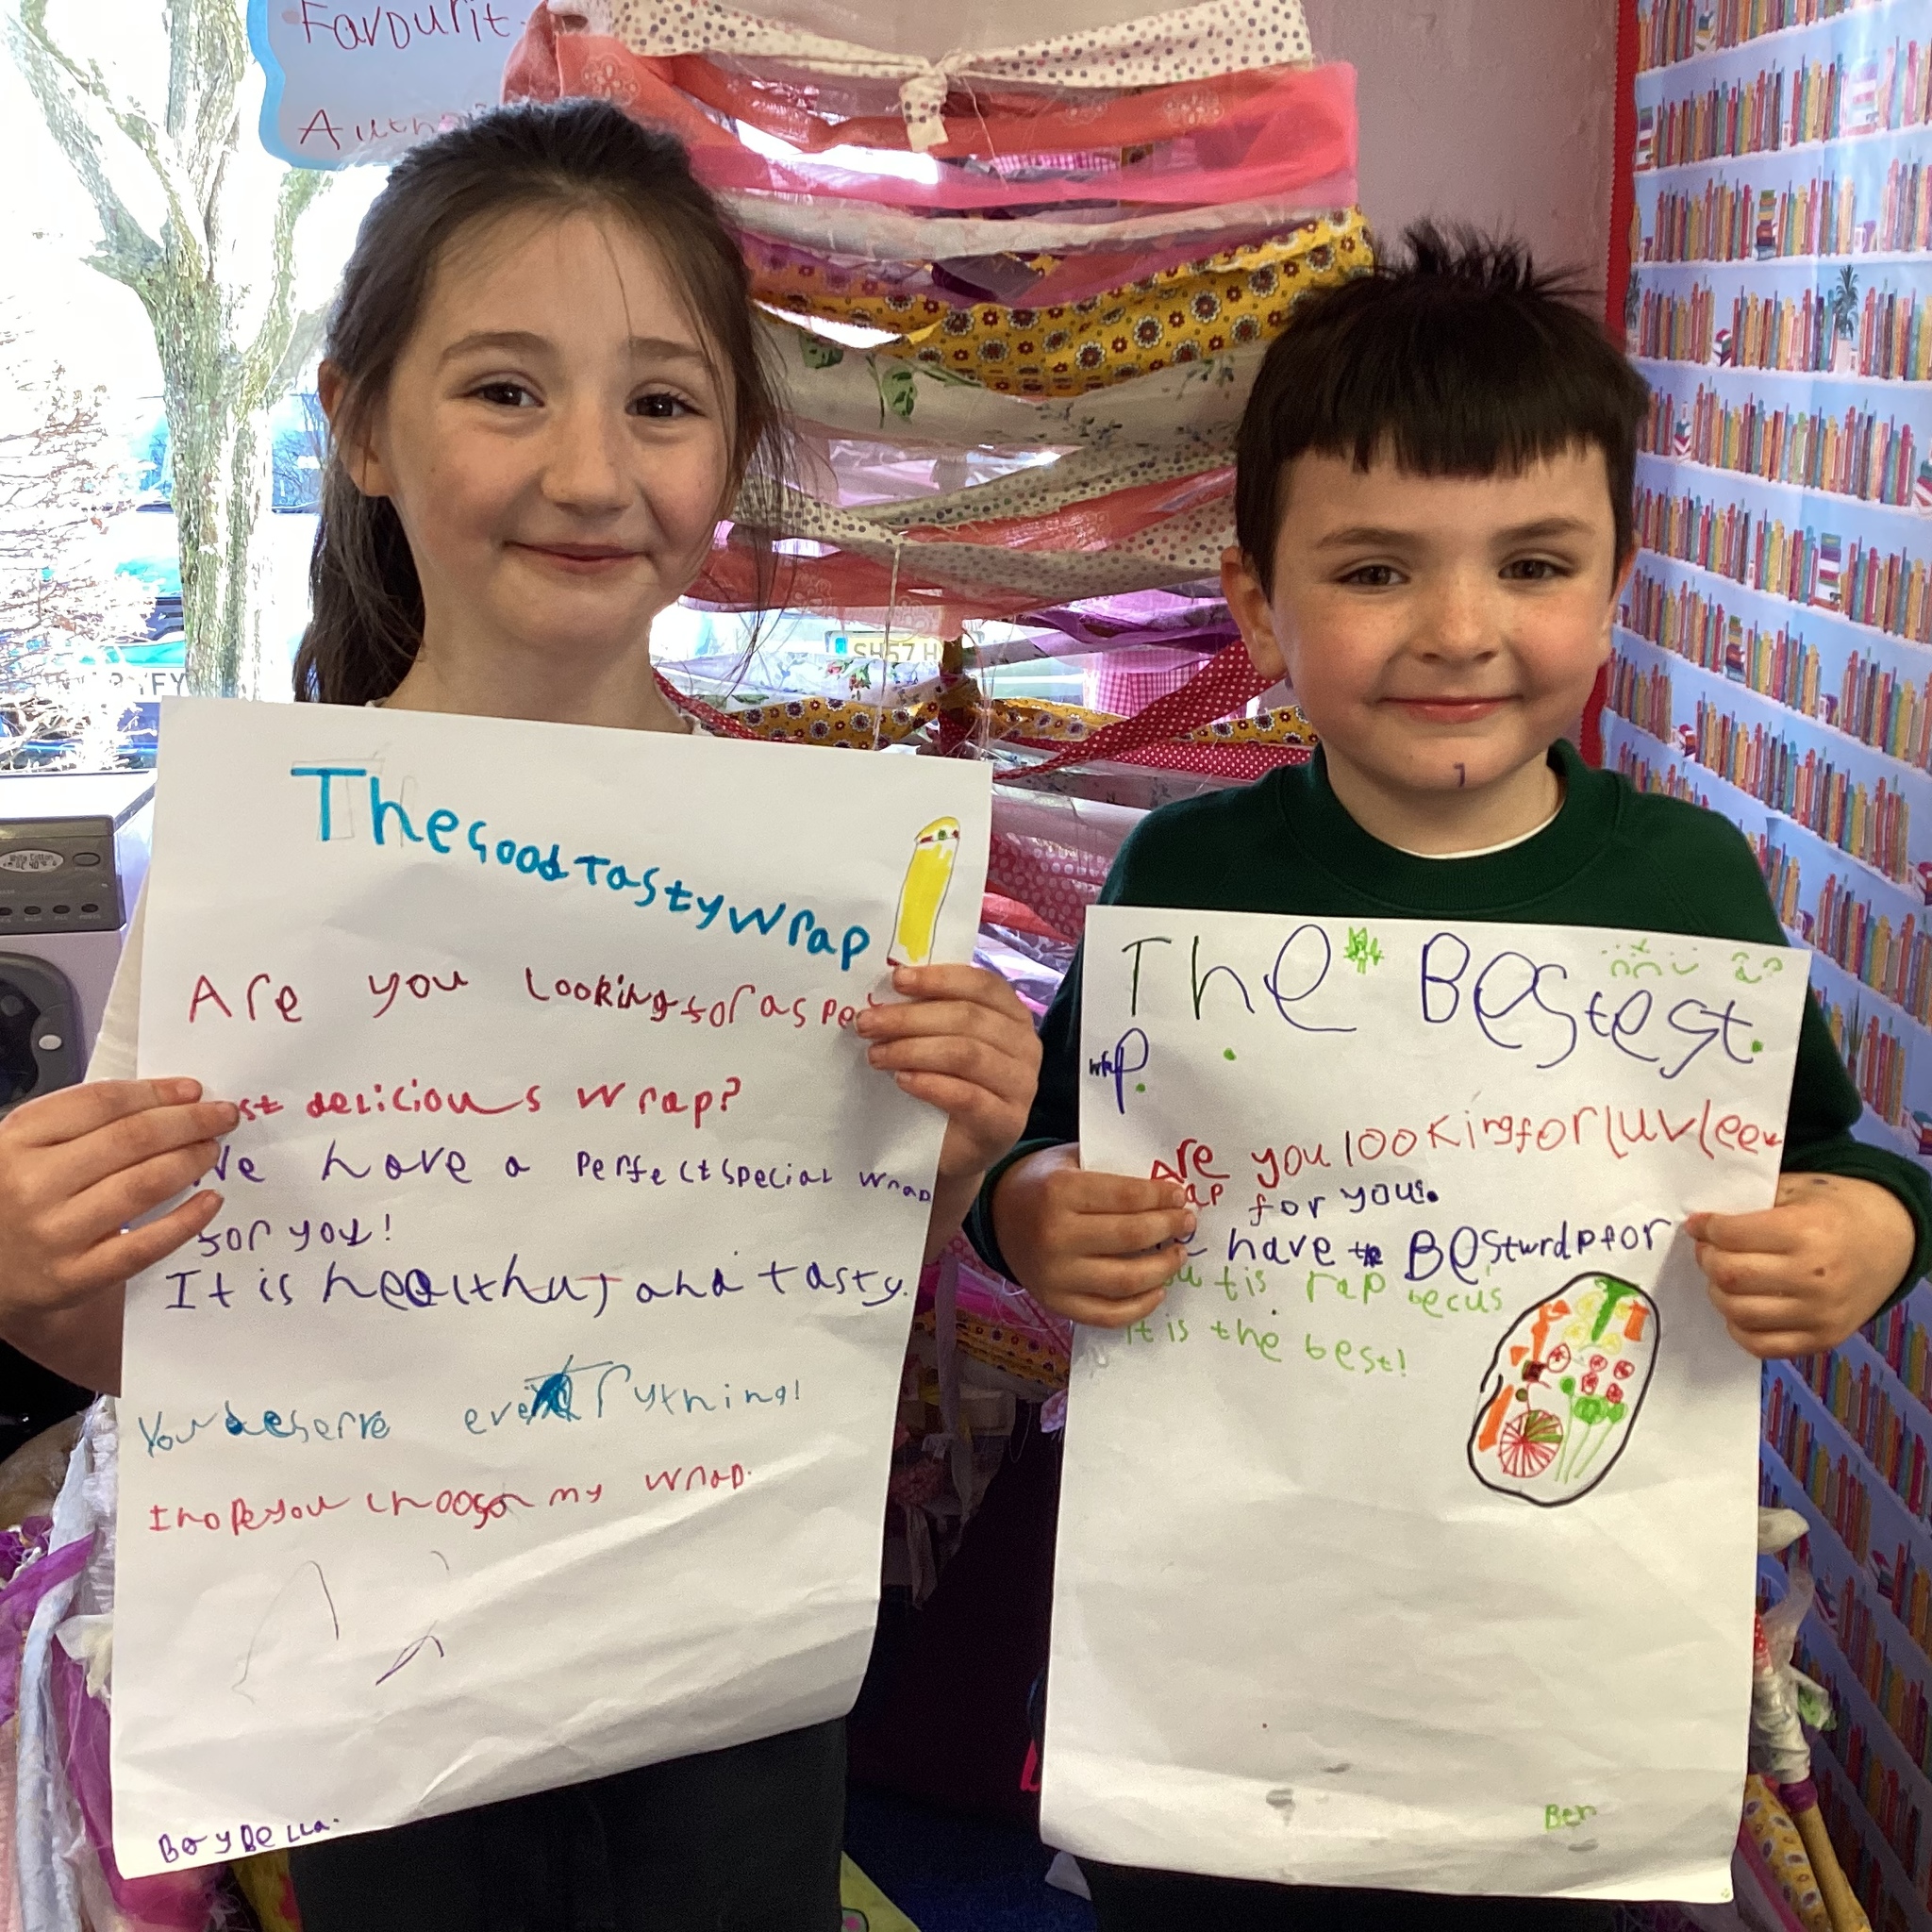 Favourit
Auth
SH57 H
The Good Tasty Wrap
Are you looking for a spe
st delicious wrap?
We have a perfect special wrap
for you!
It is healthuy and tasty.
You deserve everything!
I hope you choose my wrap.
Bo y Bella.
The Bestest.
wrap.
Are you looking for luvlee
ap for you.
have the Best wrap for
tis rap becus
it is the best!
Ben